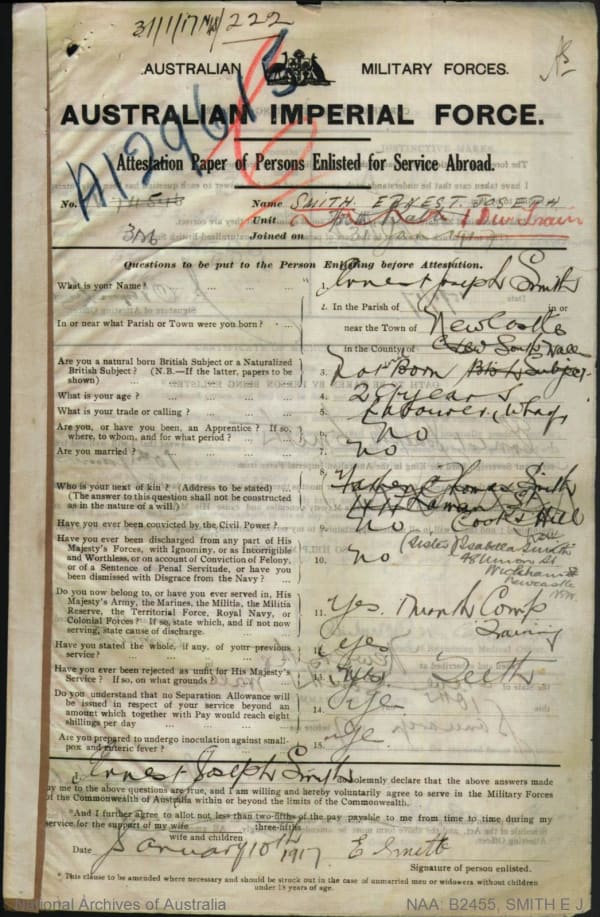 31/1/17 222
AUSTRALIAN MILITARY FORCES.
AUSTRALIAN IMPERIAL FORCE.
A12961
Attestation Paper of Persons Enlisted for Service Abroad.
No. Name SMITH. ERNEST JOSEPH
Unit
Joined on
Questions to be put to the Person Enlisting before Attestation.
What is your Name? ... ... ... ... Ernest Joseph Smith
In or near what Parish or Town were you born? ... 2. In the Parish of in or
near the Town of Newcastle
in the County of New South Wales
Are you a natural born British Subject or a Naturalized
British Subject? (N.B.—If the latter, papers to be
shown) ... 3. Nat Born British Subject
What is your age? ... 4. 28 years
What is your trade or calling? ... 5. Labourer, Wharf
Are you, or have you been, an Apprentice? If so,
where, to whom, and for what period? ... 6. No
Are you married? ... 7. No
Who is your next of kin? (Address to be stated) ...
(The answer to this question shall not be constructed
as in the nature of a will.) 8. Father Thomas Smith
Cooks Hill
NSW
Have you ever been convicted by the Civil Power? ... 9. No
(Sister) Isabella Smith
48 Union St
Wickham
Newcastle
NSW.
Have you ever been discharged from any part of His
Majesty's Forces, with Ignominy, or as Incorrigible
and Worthless, or on account of Conviction of Felony,
or of a Sentence of Penal Servitude, or have you
been dismissed with Disgrace from the Navy? ... 10. No
Do you now belong to, or have you ever served in, His
Majesty's Army, the Marines, the Militia, the Militia
Reserve, the Territorial Force, Royal Navy, or
Colonial Forces? If so, state which, and if not now
serving, state cause of discharge. 11. Yes. Comp
Training
Have you stated the whole, if any, of your previous
service? ... 12. Yes
Have you ever been rejected as unfit for His Majesty's
Service? If so, on what grounds? ... 13. Yes. Teeth
Do you understand that no Separation Allowance will
be issued in respect of your service beyond an
amount which together with Pay would reach eight
shillings per day ... 14. Yes
Are you prepared to undergo inoculation against small-
pox and enteric fever? ... 15. Yes
I, Ernest Joseph Smith do solemnly declare that the above answers made
by me to the above questions are true, and I am willing and hereby voluntarily agree to serve in the Military Forces
of the Commonwealth of Australia within or beyond the limits of the Commonwealth.
*And I further agree to allot not less than two-fifths of the pay payable to me from time to time during my
three-fifths
service for the support of my wife
wife and children
Date January 10th 1917 E Smith
Signature of person enlisted.
* This clause to be amended where necessary and should be struck out in the case of unmarried men or widowers without children
under 18 years of age.
National Archives of Australia NAA: B2455, SMITH E J